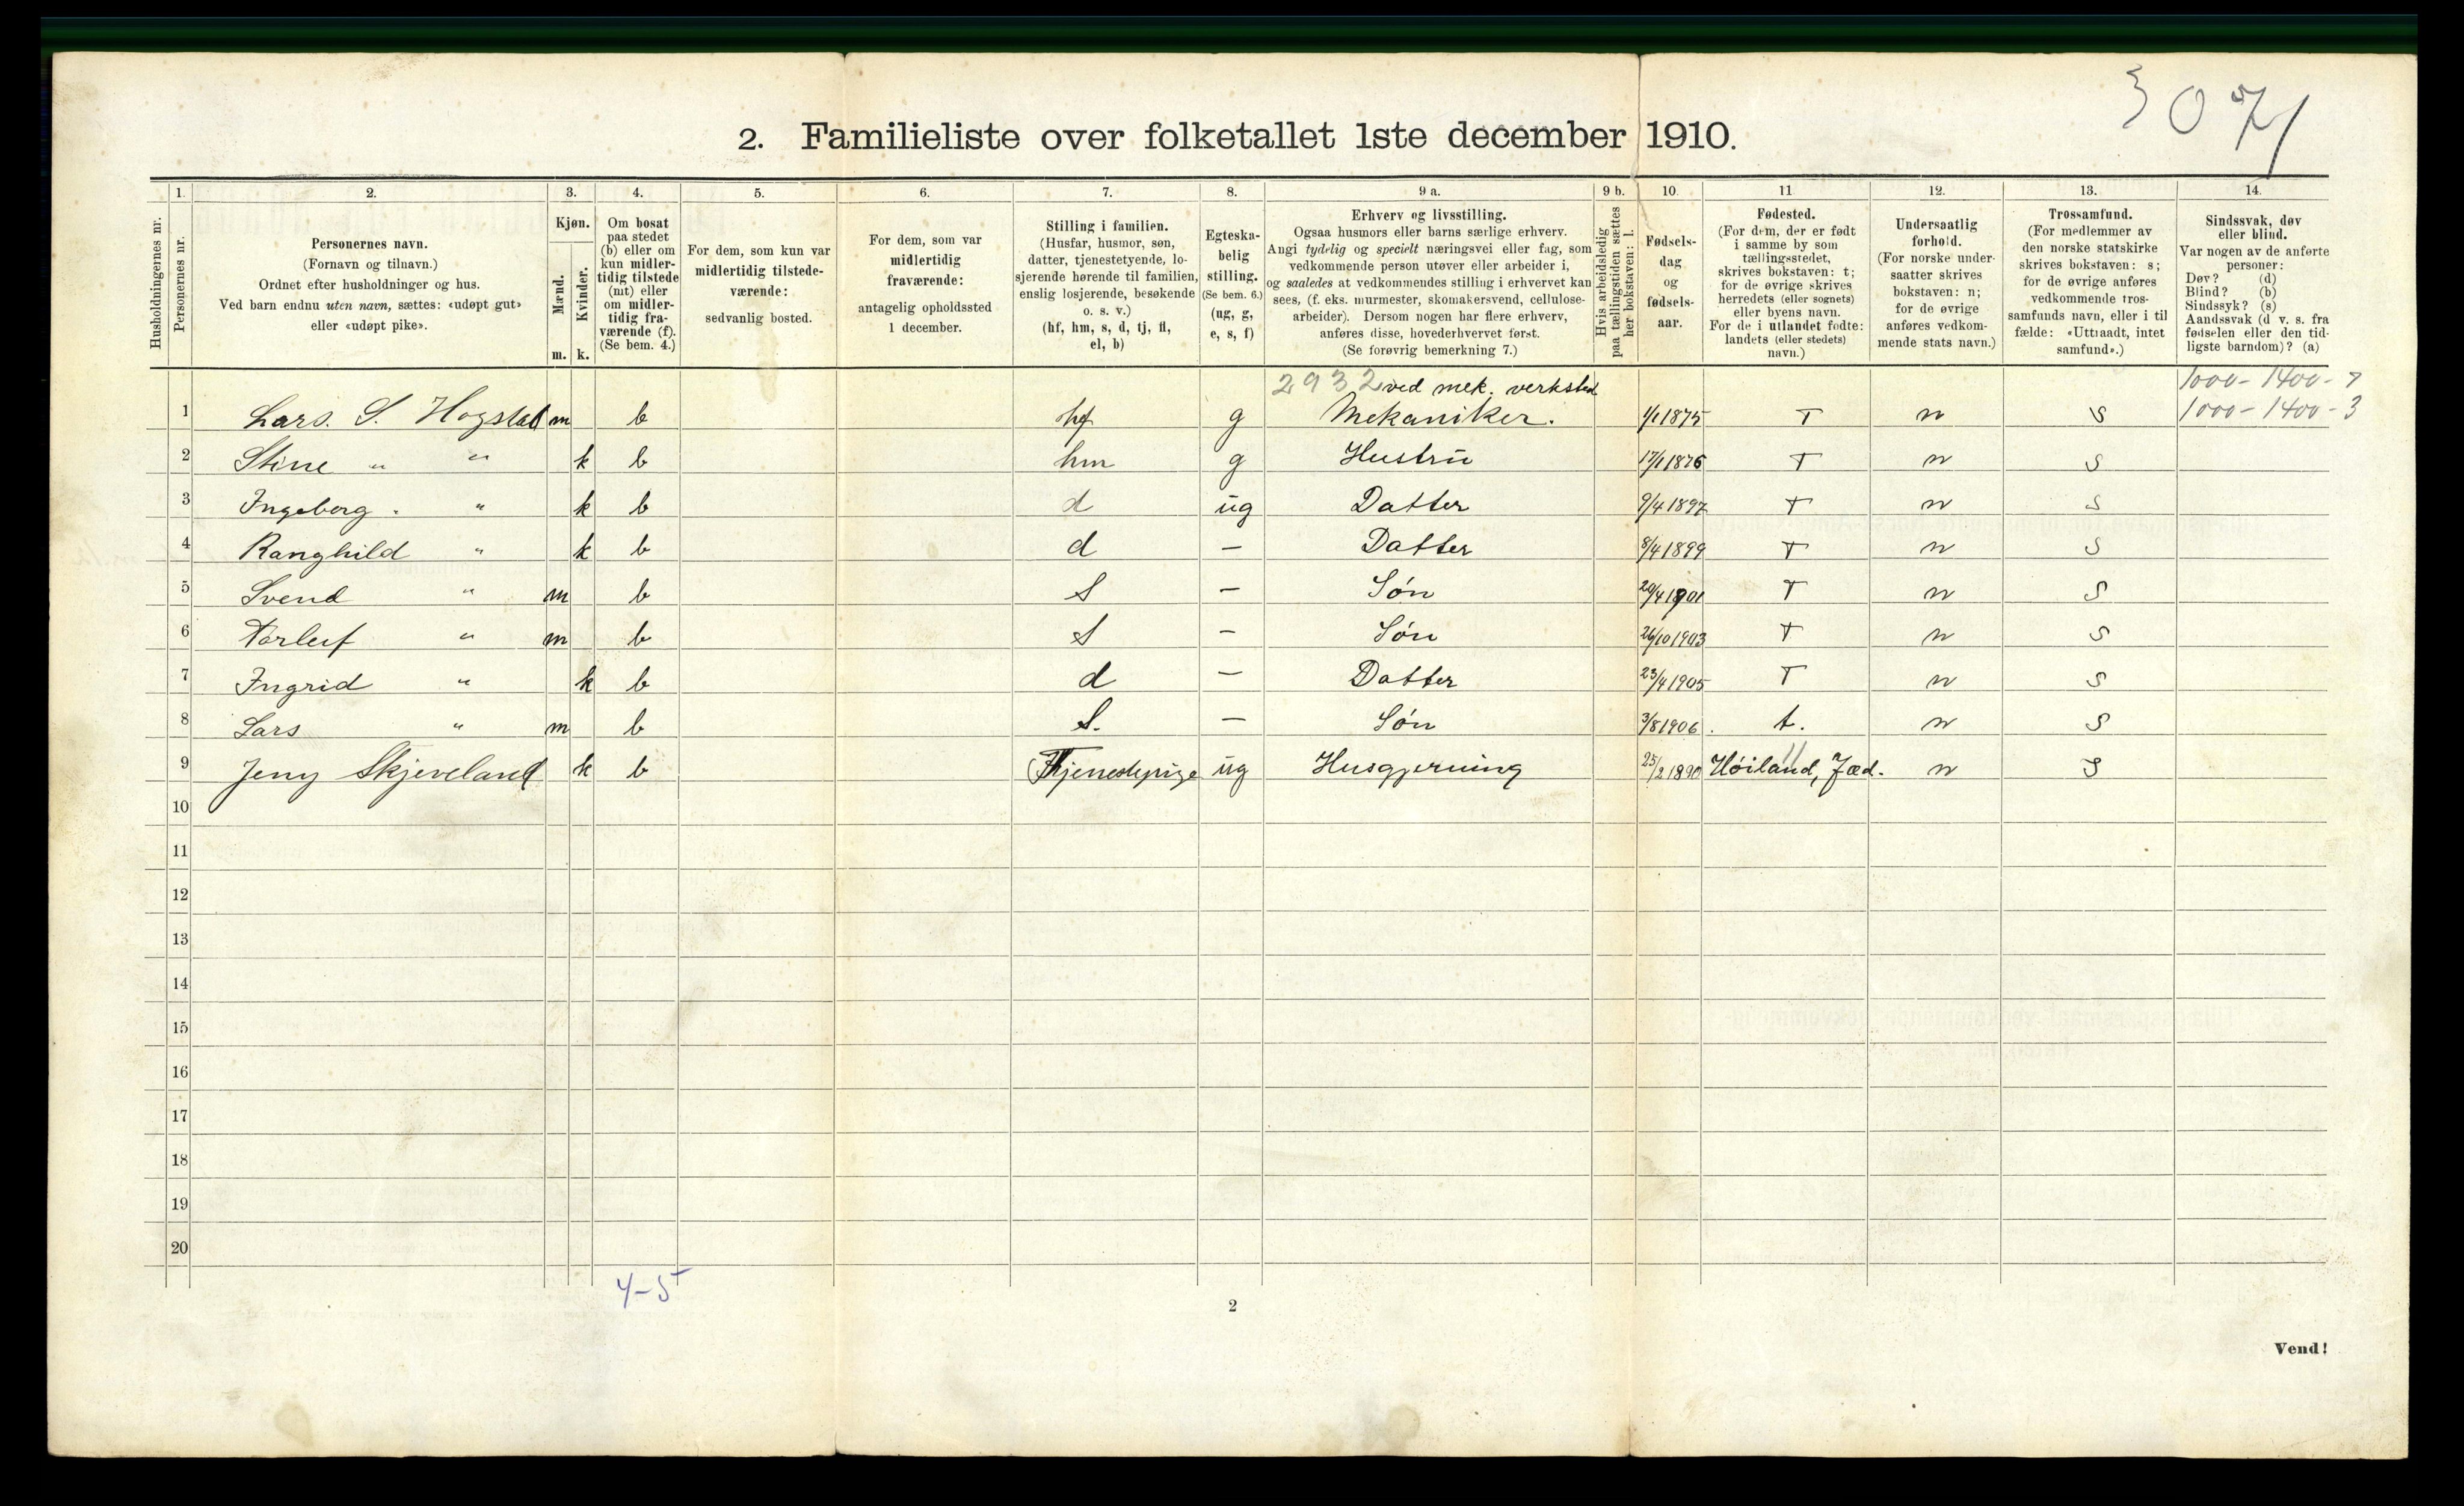 3071
2. Familieliste over folketallet 1ste december 1910.
1. 2. 3. 4. 5. 6. 7. 8. 9 a. 9 b. 10. 11 12. 13. 14.
Husholdningernes nr.
Personernes nr.
Personernes navn.
(Fornavn og tilnavn.)
Ordnet efter husholdninger og hus.
Ved barn endnu uten navn, sættes: «udøpt gut»
eller «udøpt pike».
Kjøn.
Mænd.
Kvinder.
m. k.
Om bosat
paa stedet
(b) eller om
kun midler-
tidig tilstede
(mt) eller
om midler-
tidig fra-
værende (f).
(Se bem. 4.)
For dem, som kun var
midlertidig tilstede-
værende:
sedvanlig bosted.
For dem, som var
midlertidig
fraværende:
antagelig opholdssted
1 december.
Stilling i familien.
(Husfar, husmor, søn,
datter, tjenestetyende, lo-
sjerende hørende til familien,
enslig losjerende, besøkende
o. s. v.)
(hf, hm, s, d, tj, fl,
el, b)
Egteska-
belig
stilling.
(Se bem. 6.)
(ug, g,
e, s, f)
Erhverv og livsstilling.
Ogsaa husmors eller barns særlige erhverv.
Angi tydelig og specielt næringsvei eller fag, som
vedkommende person utøver eller arbeider i,
og saaledes at vedkommendes stilling i erhvervet kan
sees, (f. eks. murmester, skomakersvend, cellulose-
arbeider). Dersom nogen har flere erhverv,
anføres disse, hovederhvervet først.
(Se forøvrig bemerkning 7.)
Hvis arbeidsledig
paa tællingstiden sættes
her bokstaven: l.
Fødsels-
dag
og
fødsels-
aar.
Fødested.
(For dem, der er født
i samme by som
tællingsstedet,
skrives bokstaven: t;
for de øvrige skrives
herredets (eller sognets)
eller byens navn.
For de i utlandet fødte:
landets (eller stedets)
navn.)
Undersaatlig
forhold.
(For norske under-
saatter skrives
bokstaven: n;
for de øvrige
anføres vedkom-
mende stats navn.)
Trossamfund.
(For medlemmer av
den norske statskirke
skrives bokstaven: s;
for de øvrige anføres
vedkommende tros-
samfunds navn, eller i til
fælde: «Uttraadt, intet
samfund».)
Sindssvak, døv
eller blind.
Var nogen av de anførte
personer:
Døv? (d)
Blind? (b)
Sindssyk? (s)
Aandssvak (d v. s. fra
fødselen eller den tid-
ligste barndom)? (a)
2932 ved mek. verksted 1000-1400-7
1 Lars. S. Hogstad m b hf g Mekaniker. 1/1 1875 T n S 1000-1400-3
2 Stine " " k b hm g Hustrü 17/1 1876 T n S
3 Ingeborg. " k b d üg Datter 9/4 1897 T n S
4 Ranghild " k b d — Datter 8/4 1899 T n S
5 Svend " m b S — Søn 20/4 1901 T n S
6 Torleif " m b S — Søn 26/10 1903 T n S
7 Ingrid " k b d — Datter 23/4 1905 T n S
8 Lars " m b S. — Søn 3/8 1906. t. n S
9 Jeny Skjeveland k b Tjenestepige üg Husgjerning 25/2 1890 Höiland, Jæd. n S
10
11
12
13
14
15
16
17
18
19
20
4-5
2
Vend!